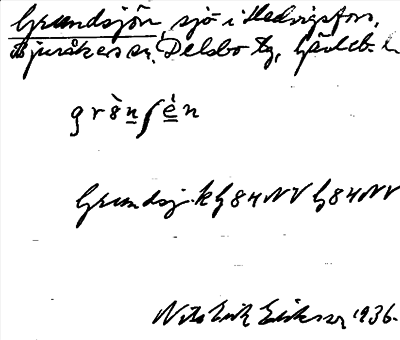 Grundsjön, sjö i Hedvigsfors,
Bjuråkers sn, Delsbo tg, Gävleb. l.
grò̀nʃèn
Grundsj. k G84NV G84NV
Nils Erik Eriksson 1936.